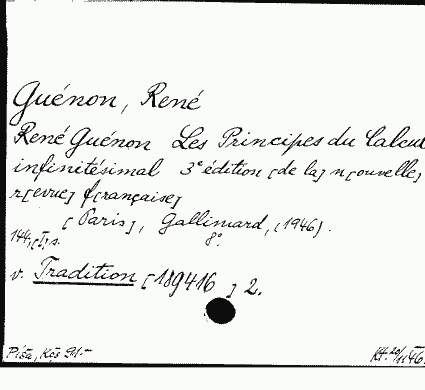 Guénon, René
René Guénon Les Principes du Calcul
infinitésimal 3e édition [de la] n[ouvelle]
r[evue] f[rançaise]
[Paris], Gallimard, [1946].
144, [I] s. 8°
v. Tradition [189416] 2.